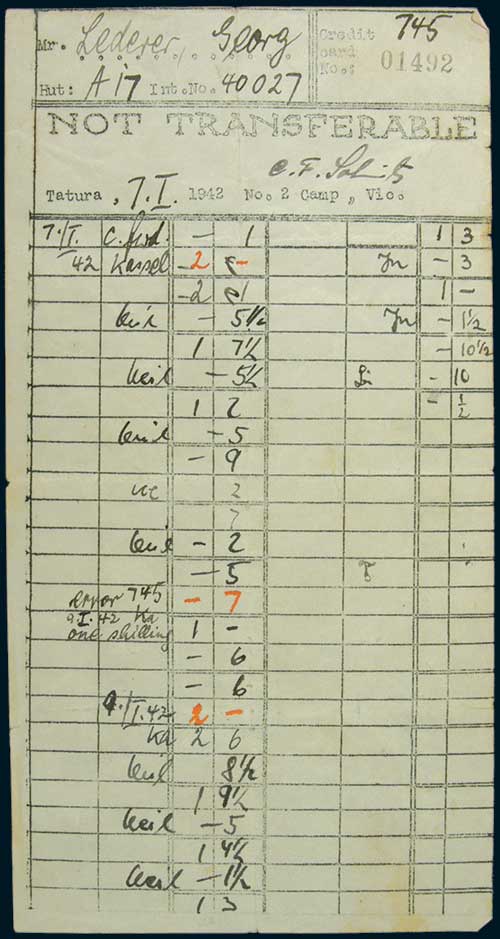 Mr. Lederer, Georg
Credit card No.: 745 01492
Hut: A17 Int.No. 40027
NOT TRANSFERABLE
Tatura, 7.I. 1942 No. 2 Camp, Vic.
7./I. – 1 1 3
42 Kassel 2 – – 3
1 –
– 5½ – 1½
1 7½ – 10½
– 5½ – 10
1 2 – ½
– 5
– 9
2
7
– 2
– 5
error 745 – 7
9.I.42 Ka
one shilling 1 –
– 6
– 6
9./I.42 2 –
Ka 2 6
8½
1 9½
– 5
1 4½
– 1½
1 3